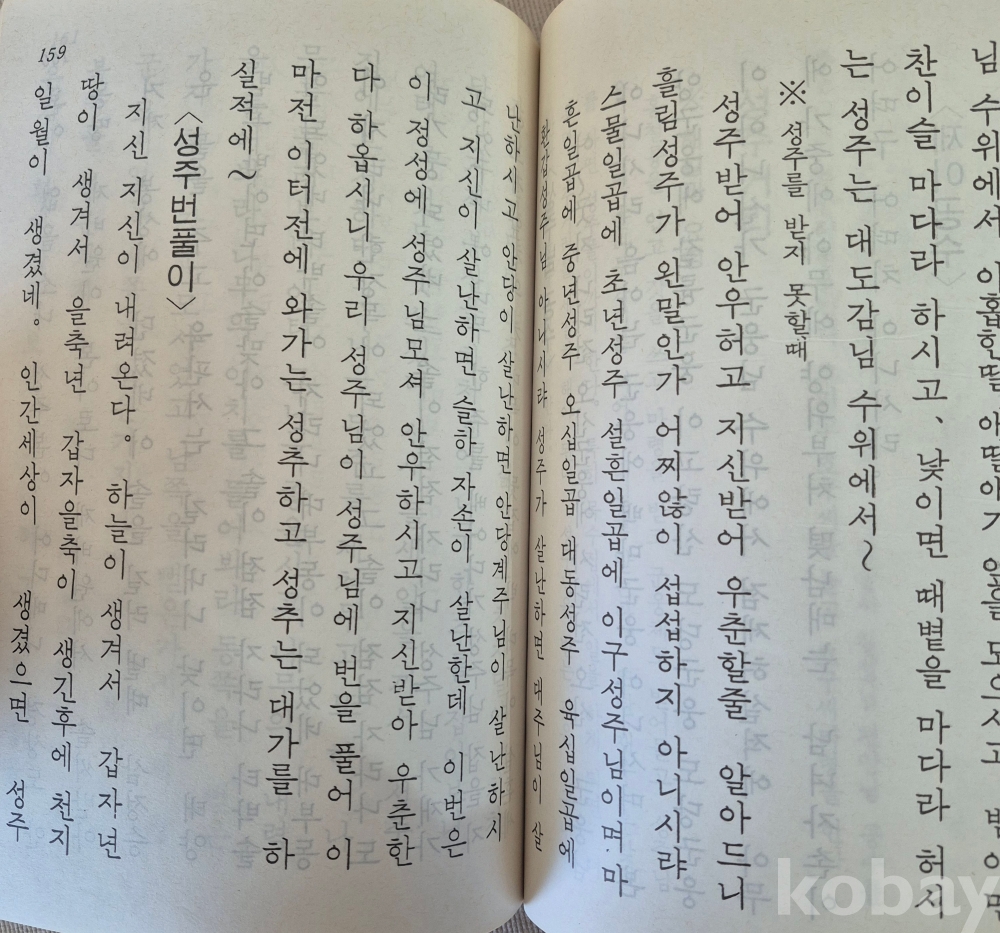 님 수위에서
찬이슬 마다라 하시고、낮이면 때볕을 마다라 허시
는 성주는 대도감님 수위에서~
※ 성주를 받지 못할때
성주받어 안우허고 지신받어 우춘할줄 알아드니
흘림성주가 왼말인가 어찌않이 섭섭하지 아니시랴
스물일곱에 초년성주 설흔일곱에 이구성주님이며·마
흔일곱에 중년성주 오십일곱 대동성주 육십일곱에
환갑성주님 아니시랴 성주가 살난하면 대주님이 살
난하시고 안당이 살난하면 안당계주님이 살난하시
고 지신이 살난하면 슬하 자손이 살난한데 이번은
이 정성에 성주님모셔 안우하시고 지신받아 우춘한
다 하옵시니 우리 성주님이 성주님에 번을 풀어 이
마전 이터전에 와가는 성추하고 성추는 대가를 하
실적에~
〈성주번풀이〉
지신 지신이 내려온다。 하늘이 생겨서 갑자년
땅이 생겨서 을축년 갑자을축이 생긴후에 천지
일월이 생겼네。 인간세상이 생겼으면 성주
159
kobay